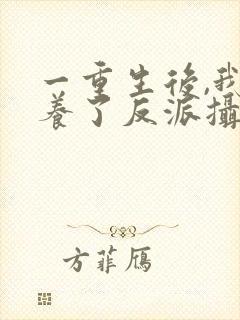 一重生後,我
養了反派攝
方菲鴈